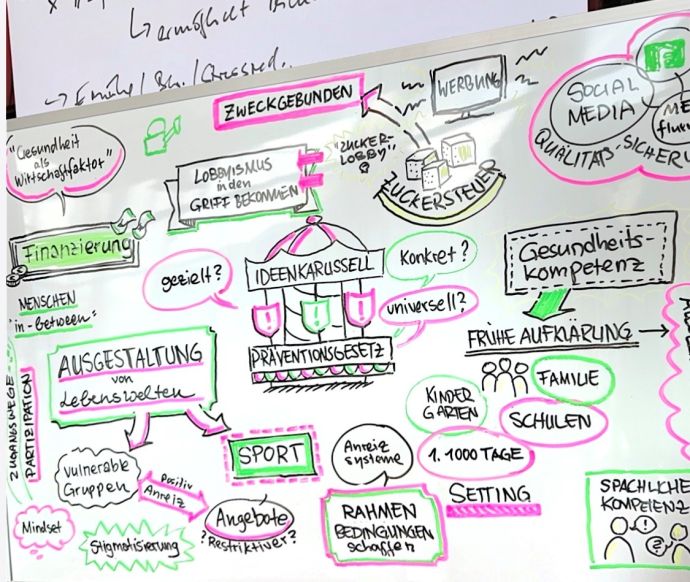 ermöglicht
ZWECKGEBUNDEN
WERBUNG
SOCIAL
MEDIA
"Gesundheit
als
Wirtschaftsfaktor"
LOBBYISMUS
in den
GRIFF BEKOMMEN
"ZUCKER-
LOBBY"
ZUCKERSTEUER
Finanzierung
gezielt?
IDEENKARUSSELL
Konkret?
universell?
PRÄVENTIONSGESETZ
Gesundheits-
kompetenz
FRÜHE AUFKLÄRUNG
MENSCHEN
"in-between"
AUSGESTALTUNG
von
Lebenswelten
ZUGANGSWEGE
PARTIZIPATION
KINDER
GARTEN
FAMILIE
SCHULEN
1. 1000 TAGE
SETTING
SPORT
Anreiz
systeme
RAHMEN
BEDINGUNGEN
schaffen
Vulnerable
Gruppen
Positiv
Anreiz
Angebote
? Restriktiver?
Mindset
Stigmatisierung
SPACHLICHE
KOMPETENZ
!
?